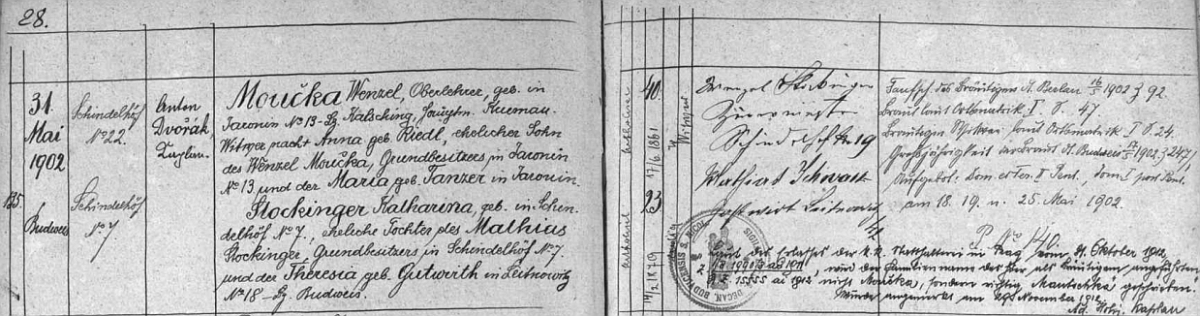 28.
31.
Mai
1902
125
Budweis
Schindelhöf
N° 22.
Schindelhöf
N° 7
Anton
Dvořák
Kaplan.
Moučka Wenzel, Oberlehrer, geb. in
Jaronin N° 13 - Bz. Kalsching, Krumau.
Witwer nach Anna geb. Riedl, ehelicher Sohn
des Wenzel Moučka, Grundbesitzers, in Jaronin
N° 13 und der Maria geb. Tanzer in Jaronin.
Stockinger Katharina, geb. in Schin-
delhöf N° 7., eheliche Tochter des Mathias
Stockinger, Grundbesitzers in Schindelhöf N° 7.
und der Theresia geb. Gutwirth in Leitnowitz
N° 18 - Bz. Budweis.
katholisch
40
17/6 1861
Witwer
katholisch
23
14/2 1879
Wenzel
Schindelhöf 19
Mathias Schwarz
Gastwirt Leitnowitz
Taufsch. des Bräutigams 1902 Z 92
Braut laut Ortsmatrik I S. 47
Bräutigam laut Ortsmatrik I S. 24.
Großjährigkeit der Braut Budweis 1902 Z 247,
Aufgebot: Dom.
am 18. 19. u. 25. Mai 1902.
140.
Laut des Erlasses der k.k. Statthalterei in Prag vom 31. Oktober 1912
15555 ai 1912 wird der Familienname des hier als Bräutigam angeführten
nicht Moučka, sondern richtig Mautschka geschrieben.
Wurde angemerkt am 29. November 1912.
Kaplan